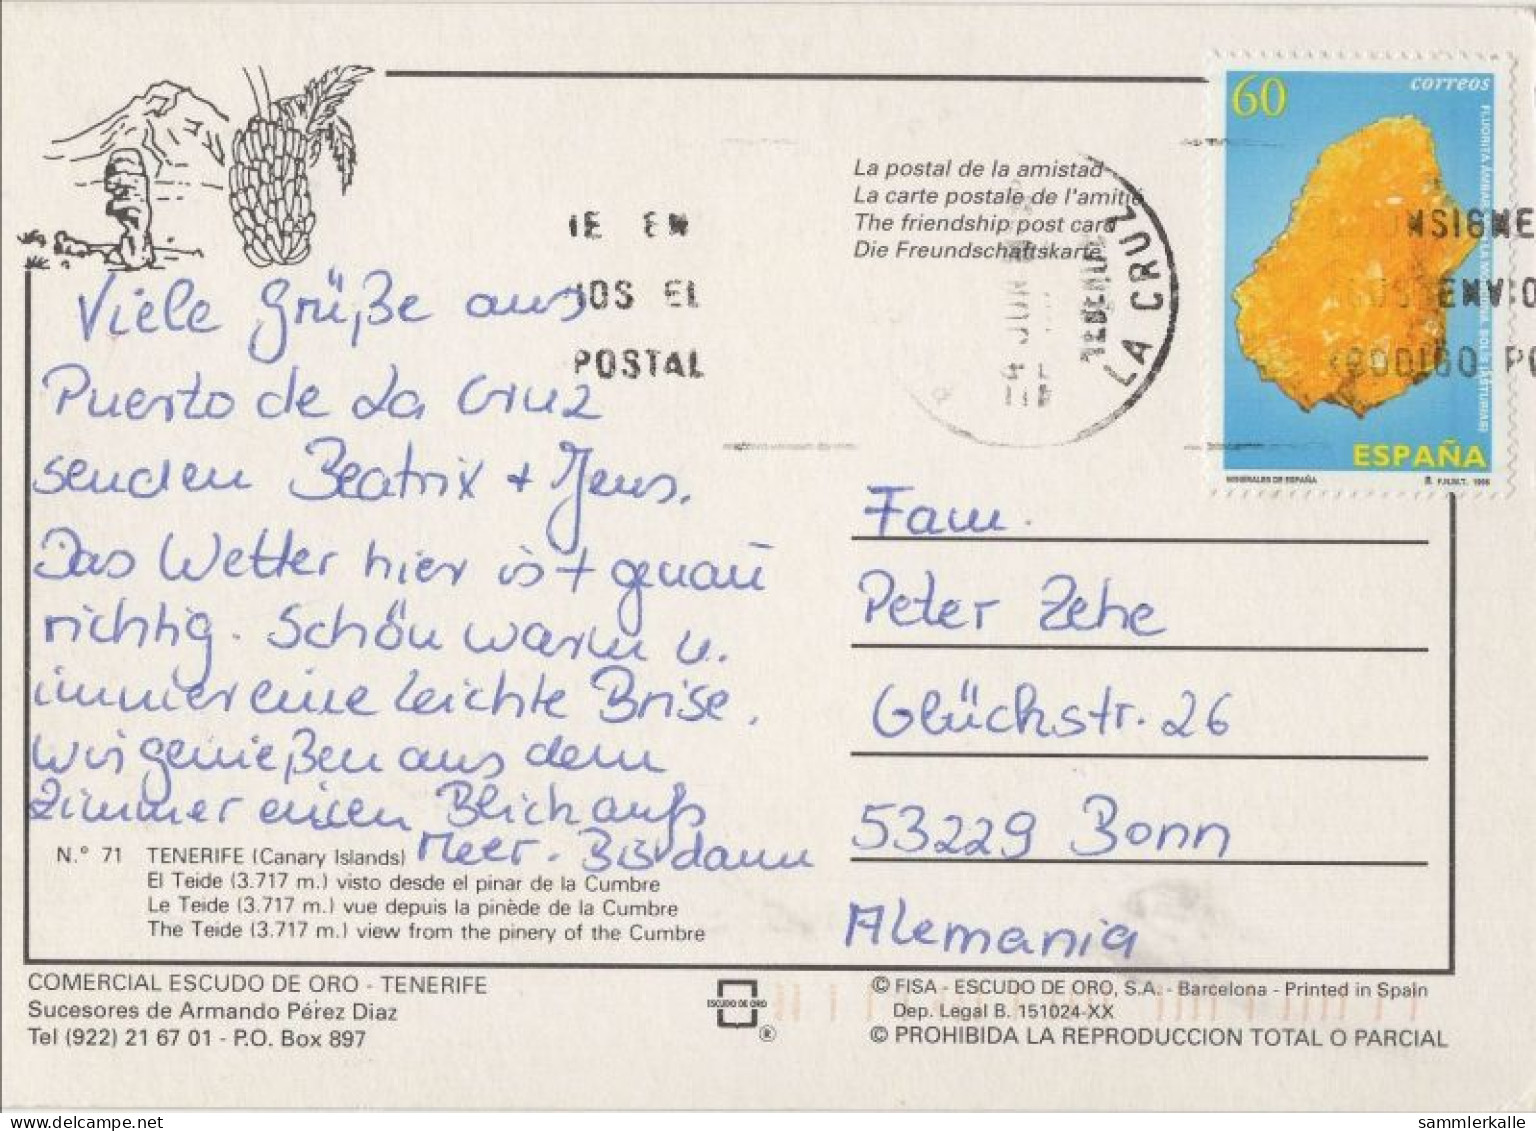 60 correos
ESPAÑA
MINERALES DE ESPAÑA
F.N.M.T. 1996
La postal de la amistad
La carte postale de l'amitié
The friendship post card
Die Freundschaftskarte
IE EN
JOS EL
POSTAL
LA CRUZ
Viele Grüße aus
Puerto de La Cruz
senden Beatrix + Jens.
Das Wetter hier ist genau
richtig. Schön warm u.
immer eine leichte Brise.
Wir genießen aus dem
Zimmer einen Blick aufs
Meer. Bis dann
Fam.
Peter Zehe
Glückstr. 26
53229 Bonn
Alemania
N.° 71 TENERIFE (Canary Islands)
El Teide (3.717 m.) visto desde el pinar de la Cumbre
Le Teide (3.717 m.) vue depuis la pinède de la Cumbre
The Teide (3.717 m.) view from the pinery of the Cumbre
COMERCIAL ESCUDO DE ORO - TENERIFE
Sucesores de Armando Pérez Diaz
Tel (922) 21 67 01 - P.O. Box 897
ESCUDO DE ORO
®
© FISA - ESCUDO DE ORO, S.A. - Barcelona - Printed in Spain
Dep. Legal B. 151024-XX
© PROHIBIDA LA REPRODUCCION TOTAL O PARCIAL
sammlerkalle